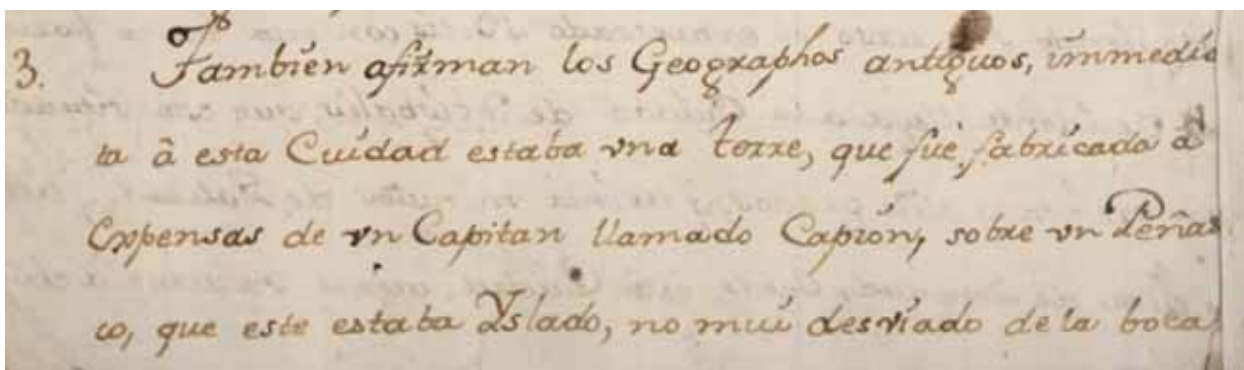 3. Tambien afirman los Geographos antiguos, immedia
ta â esta Cuidad estaba vna torre, que fuè fabricada â
Expensas de vn Capitan llamado Capion, sobre vn Peñas
co, que este estaba Yslado, no mui desviado de la boca